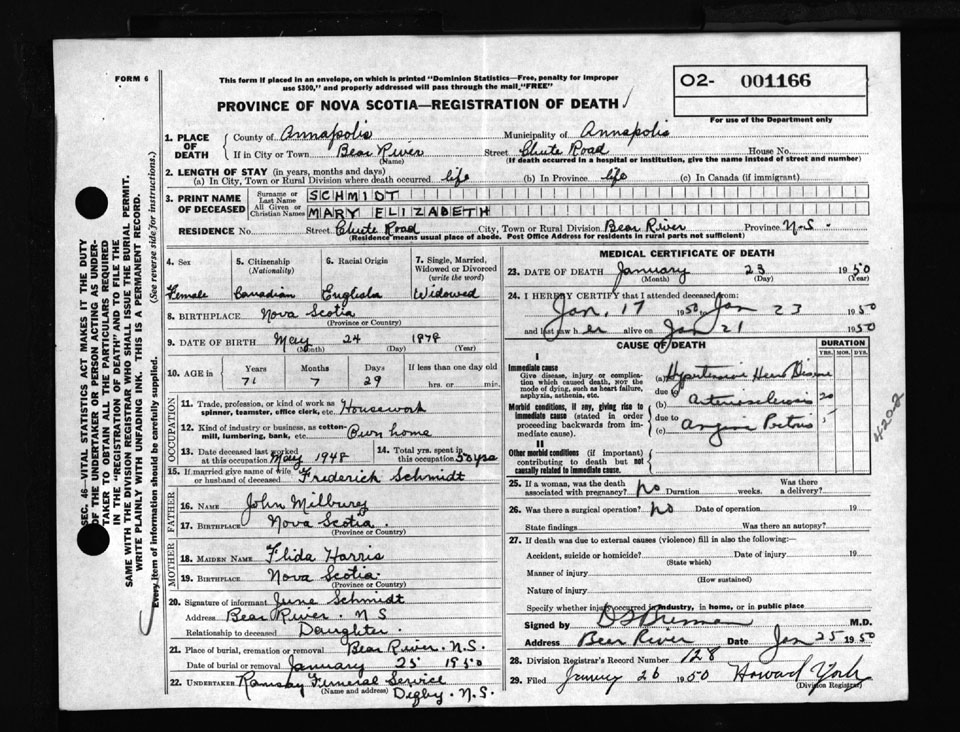 FORM 6
This form if placed in an envelope, on which is printed "Dominion Statistics—Free, penalty for improper
use $300," and properly addressed will pass through the mail "FREE"
O2- 001166
For use of the Department only
PROVINCE OF NOVA SCOTIA—REGISTRATION OF DEATH
SEC. 46—VITAL STATISTICS ACT MAKES IT THE DUTY
OF THE UNDERTAKER OR PERSON ACTING AS UNDER-
TAKER TO OBTAIN ALL THE PARTICULARS REQUIRED
IN THE "REGISTRATION OF DEATH" AND TO FILE THE
SAME WITH THE DIVISION REGISTRAR WHO SHALL ISSUE THE BURIAL PERMIT.
WRITE PLAINLY WITH UNFADING INK. THIS IS A PERMANENT RECORD.
Every item of information should be carefully supplied. (See reverse side for instructions.)
1. PLACE OF DEATH County of Annapolis Municipality of Annapolis
If in City or Town Bear River Street Chute Road House No.
(Name) (If death occurred in a hospital or institution, give the name instead of street and number)
2. LENGTH OF STAY (in years, months and days)
(a) In City, Town or Rural Division where death occurred. life (b) In Province life (c) In Canada (if immigrant)
3. PRINT NAME OF DECEASED Surname or Last Name SCHMIDT
All Given or Christian Names MARY ELIZABETH
RESIDENCE No. Street Chute Road City, Town or Rural Division Bear River Province N-S.
(Residence means usual place of abode. Post Office Address for residents in rural parts not sufficient)
4. Sex 5. Citizenship (Nationality) 6. Racial Origin 7. Single, Married, Widowed or Divorced (write the word)
Female Canadian English Widowed
8. BIRTHPLACE Nova Scotia
(Province or Country)
9. DATE OF BIRTH May 24 1878
(Month) (Day) (Year)
10. AGE in Years Months Days If less than one day old
71 7 29 hrs. or min.
OCCUPATION
11. Trade, profession, or kind of work as
spinner, teamster, office clerk, etc. Housework
12. Kind of industry or business, as cotton-
mill, lumbering, bank, etc. Own home
13. Date deceased last worked at this occupation May 1948 14. Total yrs. spent in this occupation 50 yrs
15. If married give name of wife
or husband of deceased Frederick Schmidt
FATHER
16. NAME John Milbury
17. BIRTHPLACE Nova Scotia.
(Province or Country)
MOTHER
18. MAIDEN NAME Harris
19. BIRTHPLACE Nova Scotia.
(Province or Country)
20. Signature of informant June Schmidt
Address Bear River. N S
Relationship to deceased Daughter.
21. Place of burial, cremation or removal Bear River. N.S.
Date of burial or removal January 25 1950
22. UNDERTAKER Ramsay Funeral Service
(Name and address) Digby. N.S.
MEDICAL CERTIFICATE OF DEATH
23. DATE OF DEATH January 23 1950
(Month) (Day) (Year)
24. I HEREBY CERTIFY that I attended deceased from:
Jan, 17 1950 to Jan 23 1950
and last saw her alive on Jan 21 1950
CAUSE OF DEATH DURATION
YRS. MOS. DYS.
I
Immediate cause
Give disease, injury or complica-
tion which caused death, NOT the
mode of dying, such as heart failure,
asphyxia, asthenia, etc.
(a) Hypertensive Heart Disease
due to
(b) Arteriosclerosis 20
due to
(c) Angina Pectoris 5
Morbid conditions, if any, giving rise to
immediate cause (stated in order
proceeding backwards from im-
mediate cause).
II
Other morbid conditions (if important)
contributing to death but not
causally related to immediate cause.
4202
25. If a woman, was the death
associated with pregnancy? no Duration weeks. Was there a delivery?
26. Was there a surgical operation? no Date of operation 19
State findings Was there an autopsy?
27. If death was due to external causes (violence) fill in also the following:—
Accident, suicide or homicide? Date of injury 19
(State which)
Manner of injury
(How sustained)
Nature of injury
Specify whether injury occurred in industry, in home, or in public place
Signed by M.D.
Address Bear River Date Jan 25 1950
28. Division Registrar's Record Number 128
29. Filed January 26 1950 Howard York
(Division Registrar)